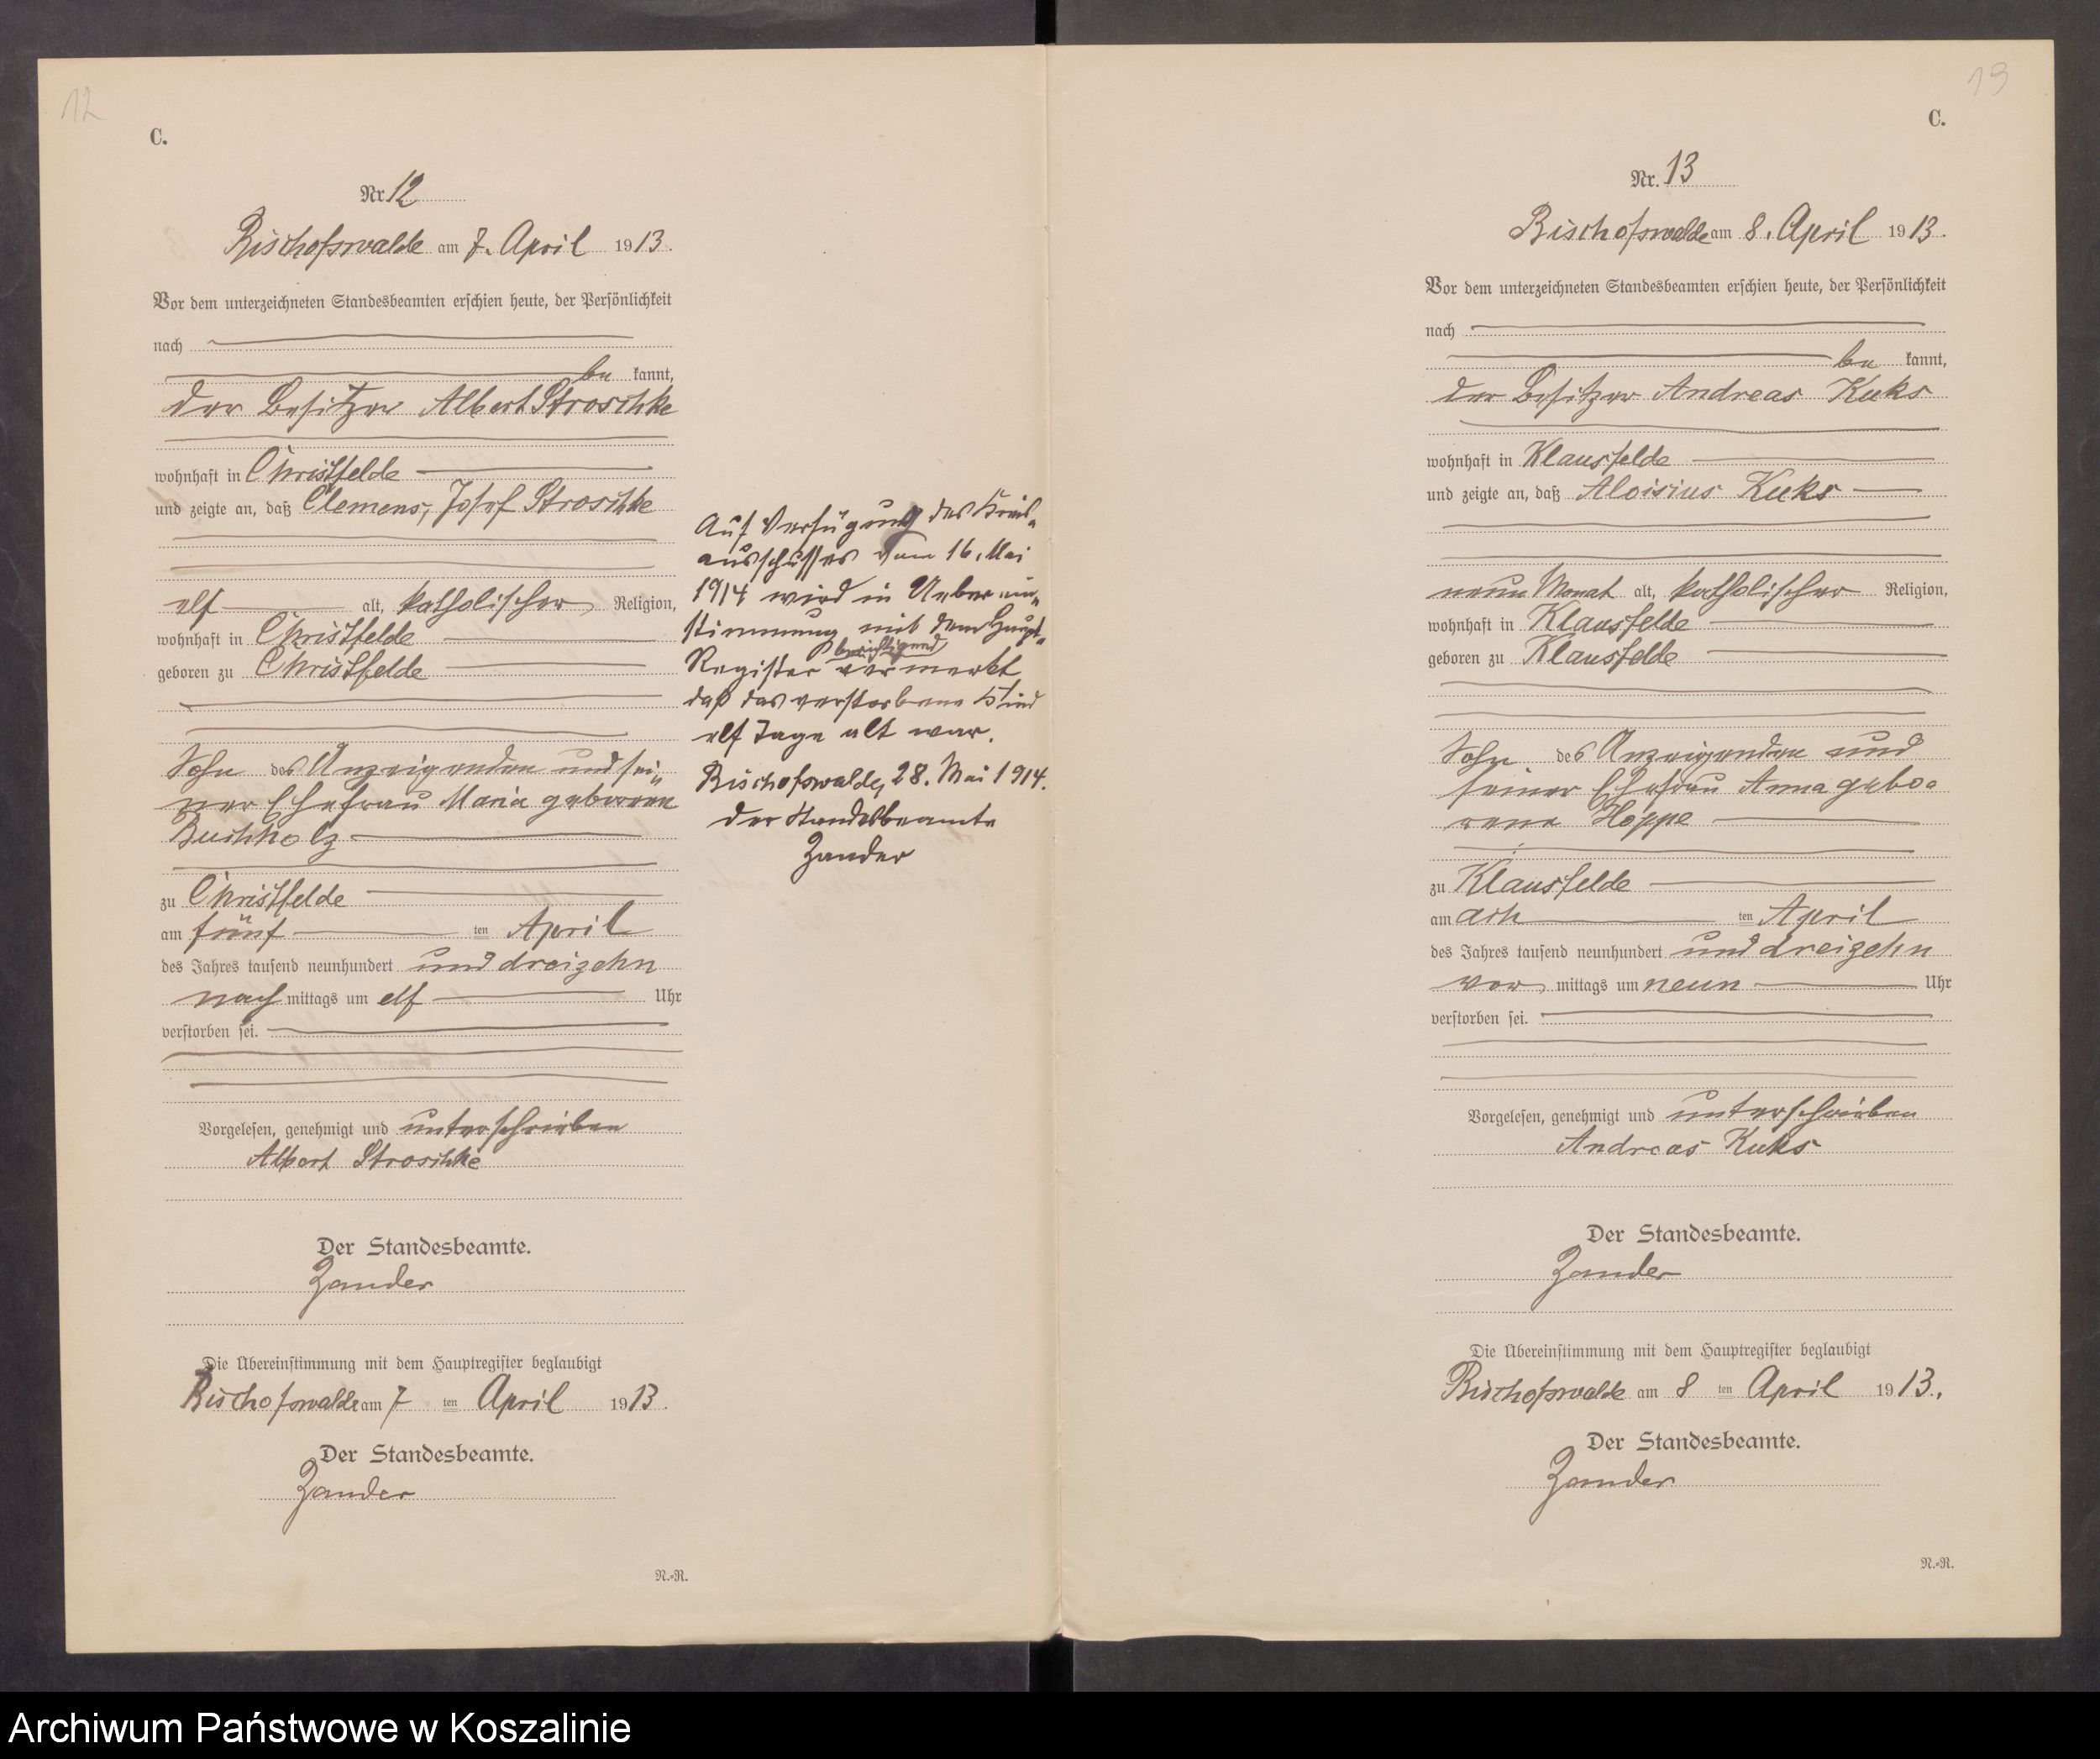 12
C.
Nr 12
Bischofswalde am 7. April 1913.
Vor dem unterzeichneten Standesbeamten erschien heute, der Persönlichkeit
nach
be kannt,
der Besitzer Albert Stroschke
wohnhaft in Christfelde
und zeigte an, daß Clemens, Josef Stroschke
elf alt, katholischer Religion,
wohnhaft in Christfelde
geboren zu Christfelde
Sohn des Anzeigenden und sei„
ner Ehefrau Maria geborene
Buchholz
zu Christfelde
am fünf ten April
des Jahres tausend neunhundert und dreizehn
nach mittags um elf Uhr
verstorben sei.
Vorgelesen, genehmigt und unterschrieben
Albert Stroschke
Der Standesbeamte.
Zander
Die Übereinstimmung mit dem Hauptregister beglaubigt
Bischofswalde am 7 ten April 1913.
Der Standesbeamte.
Zander
N.-R.
Auf Verfügung des Kreis„
ausschusses vom 16. Mai
1914 wird in Ueberein„
stimmung mit dem Haupt„
berichtigend
Register vermerkt
daß das verstorbene Kind
elf Tage alt war.
Bischofswalde, 28. Mai 1914.
Der Standesbeamte
Zander
13
C.
Nr. 13
Bischofswalde am 8. April 1913.
Vor dem unterzeichneten Standesbeamten erschien heute, der Persönlichkeit
nach
be kannt,
der Besitzer Andreas Kuks
wohnhaft in Klausfelde
und zeigte an, daß Aloisius Kuks
neun Monat alt, katholischer Religion,
wohnhaft in Klausfelde
geboren zu Klausfelde
Sohn des Anzeigenden und
seiner Ehefrau Anna gebo„
rene Hoppe
zu Klausfelde
am ach ten April
des Jahres tausend neunhundert und dreizehn
vor mittags um neun Uhr
verstorben sei.
Vorgelesen, genehmigt und unterschrieben
Andreas Kuks
Der Standesbeamte.
Zander
Die Übereinstimmung mit dem Hauptregister beglaubigt
Bischofswalde am 8 ten April 1913.
Der Standesbeamte.
Zander
N.-R.
Archiwum Państwowe w Koszalinie